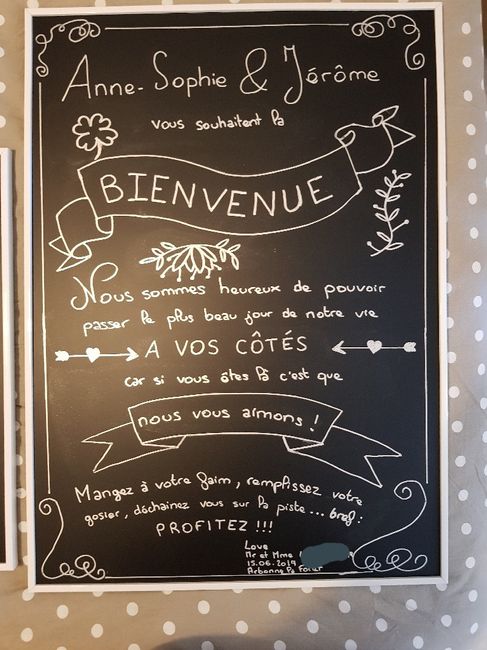 Anne-Sophie & Jérôme
vous souhaitent la
BIENVENUE
Nous sommes heureux de pouvoir
passer le plus beau jour de notre vie
A VOS CÔTÉS
car si vous êtes là c'est que
nous vous aimons !
Mangez à votre faim, remplissez votre
gosier, déchainez vous sur la piste ... bref :
PROFITEZ !!!
Love
Mr et Mme
15.06.2019
Arbonne la Foret